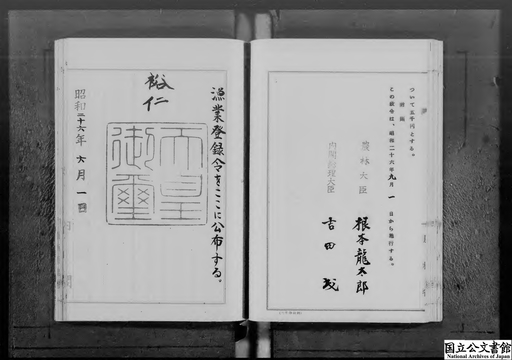 ついて五千円とする。
附則
この政令は、昭和二十六年九月一日から施行する。
農林大臣 根本龍太郎
内閣総理大臣 吉田茂
漁業登録令をここに公布する。
裕仁
天皇
御璽
昭和二十六年六月一日
国立公文書館
National Archives of Japan